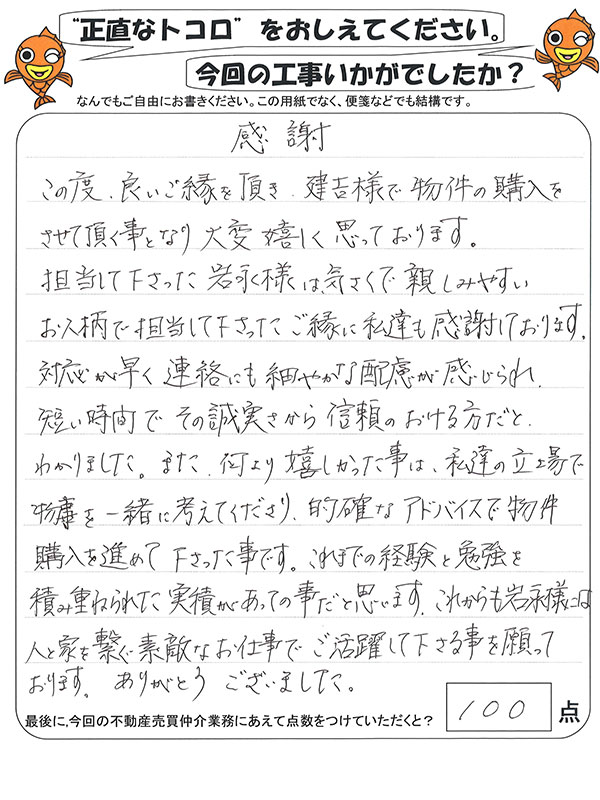 “正直なトコロ” をおしえてください。
今回の工事いかがでしたか？
なんでもご自由にお書きください。この用紙でなく、便箋などでも結構です。
感謝
この度、良いご縁を頂き、建吉様で物件の購入を
させて頂く事となり大変嬉しく思っております。
担当して下さった岩永様は気さくで親しみやすい
お人柄で担当して下さったご縁に私達も感謝しております。
対応が早く連絡にも細やかな配慮が感じられ、
短い時間でその誠実さから信頼のおける方だと、
わかりました。また、何より嬉しかった事は、私達の立場で
物事を一緒に考えてくださり、的確なアドバイスで物件
購入を進めて下さった事です。これまでの経験と勉強を
積み重ねられた実績があっての事だと思います。これからも岩永様には
人と家を繋ぐ素敵なお仕事でご活躍して下さる事を願って
おります。ありがとうございました。
最後に、今回の不動産売買仲介業務にあえて点数をつけていただくと？ 100 点